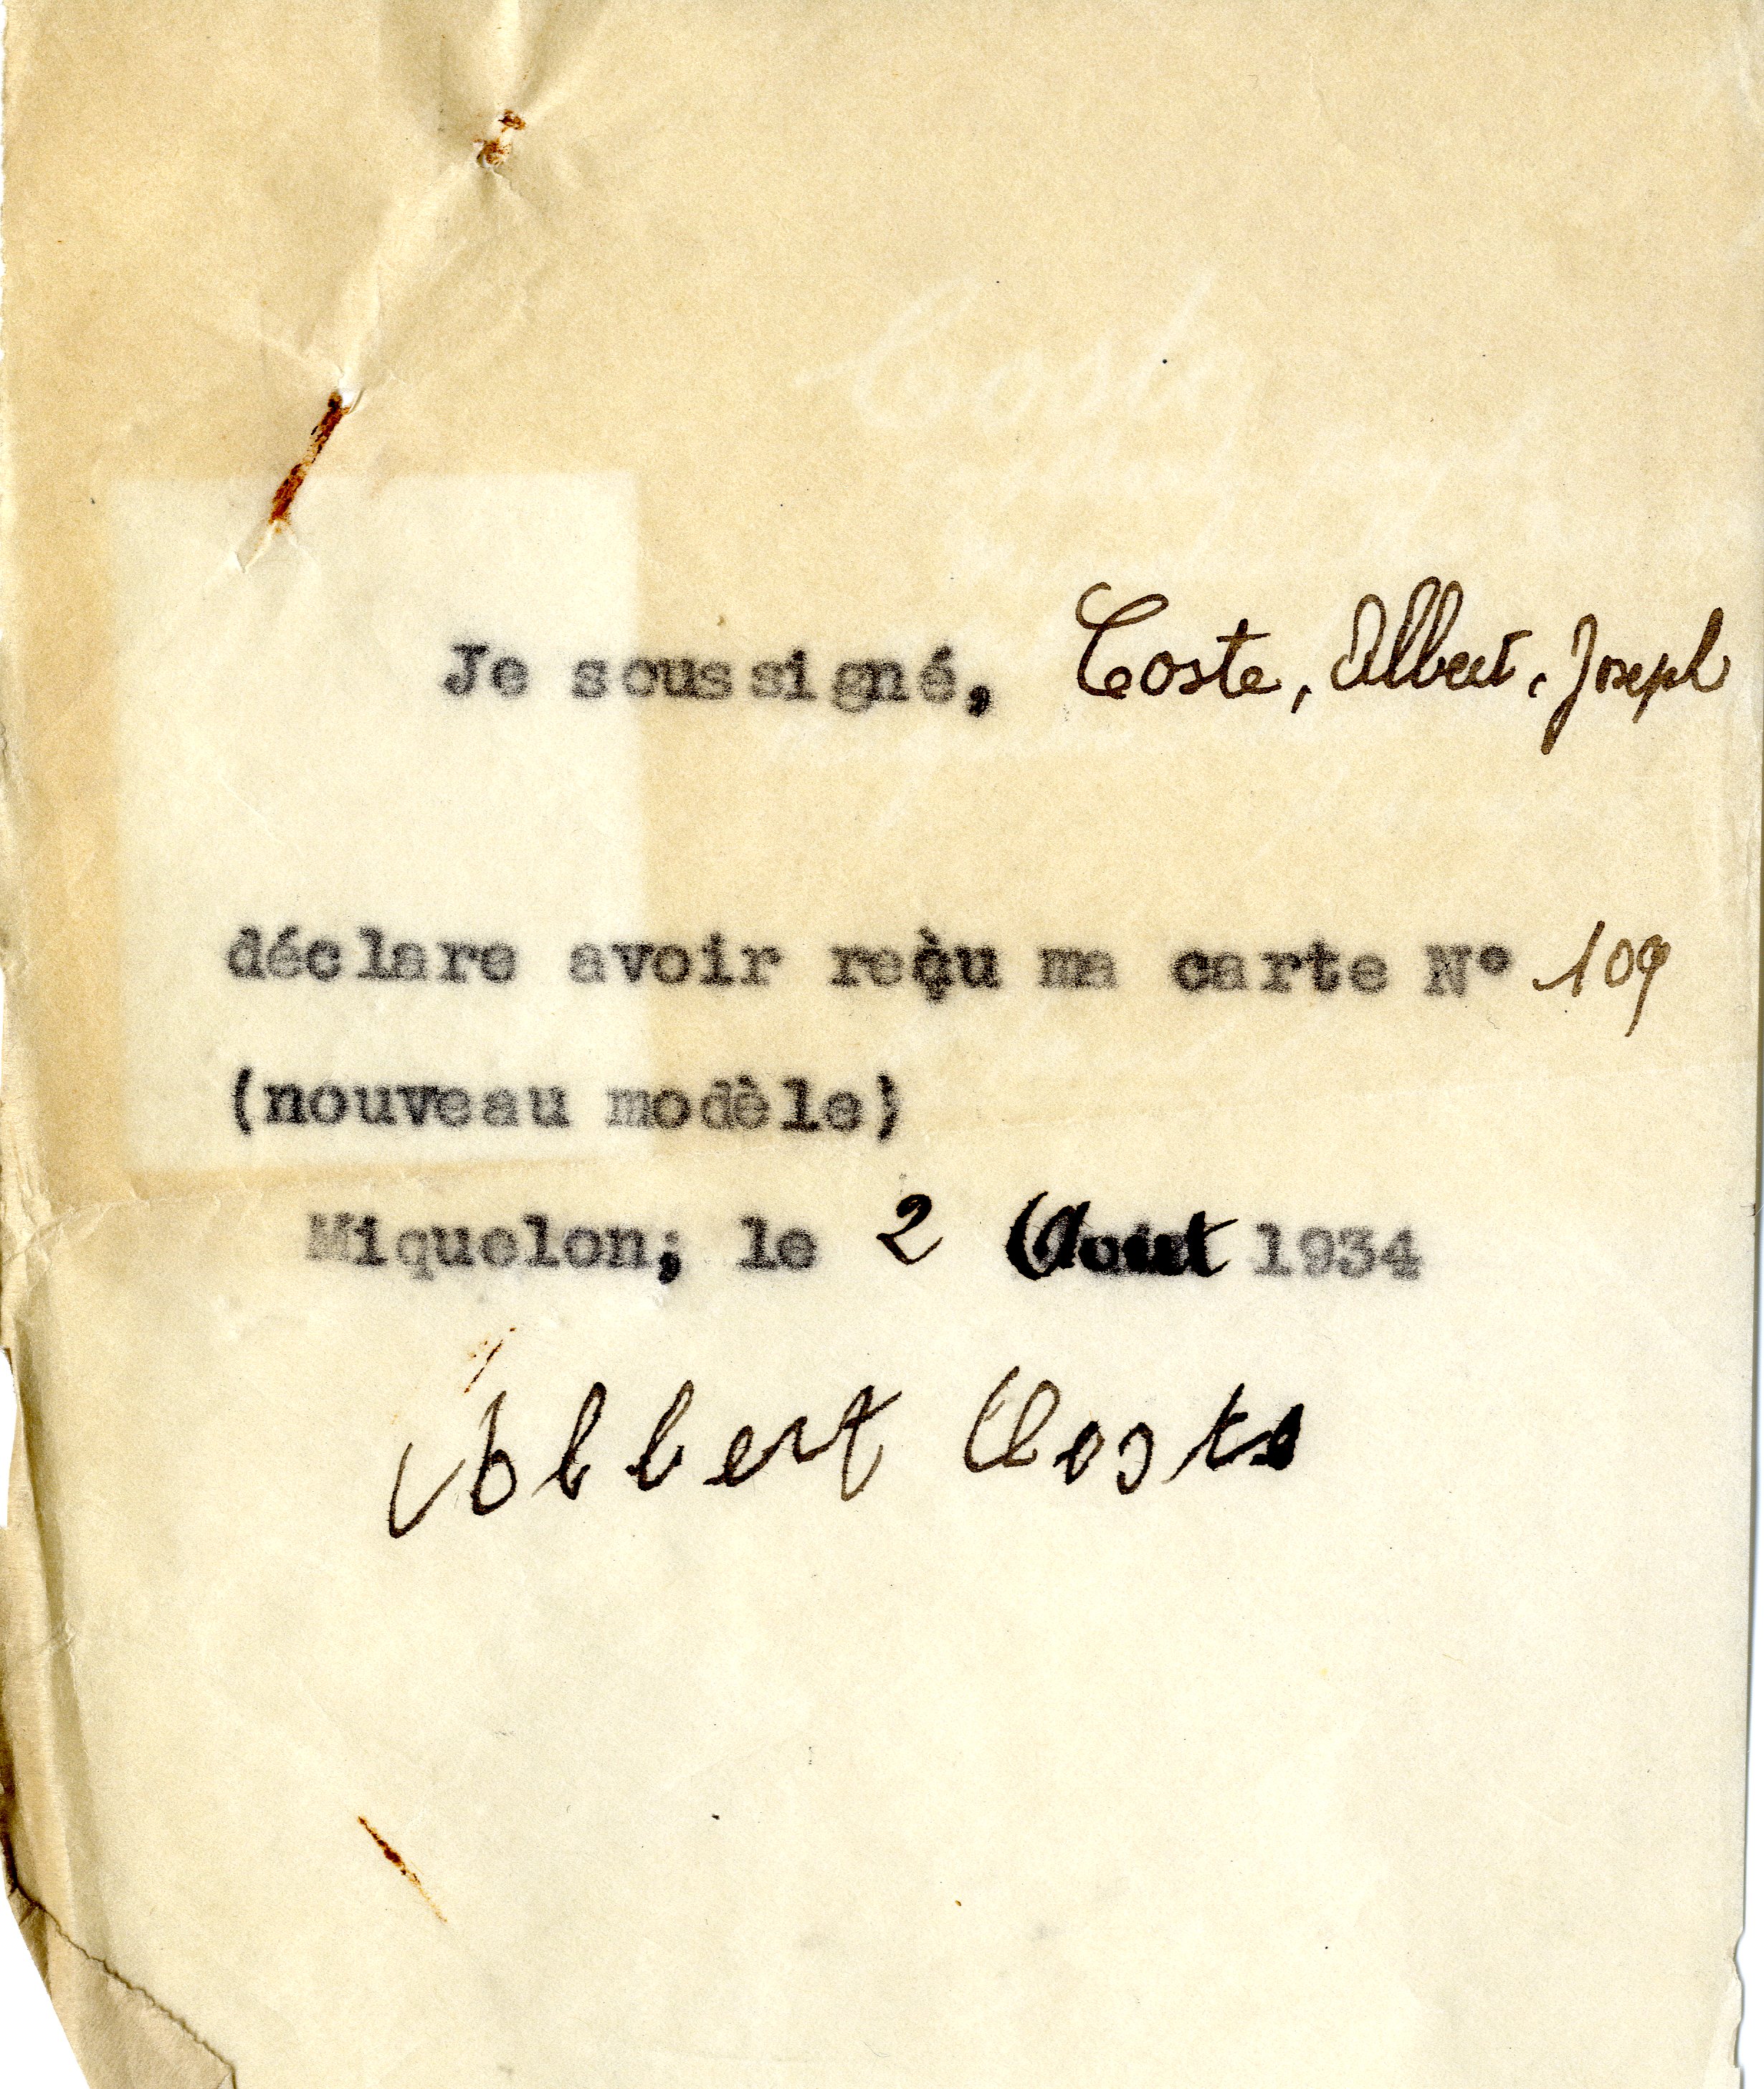 Je soussigné, Coste, Albert, Joseph
déclare avoir reçu ma carte N° 109
(nouveau modèle)
Miquelon; le 2 Aout 1934
Albert Coste